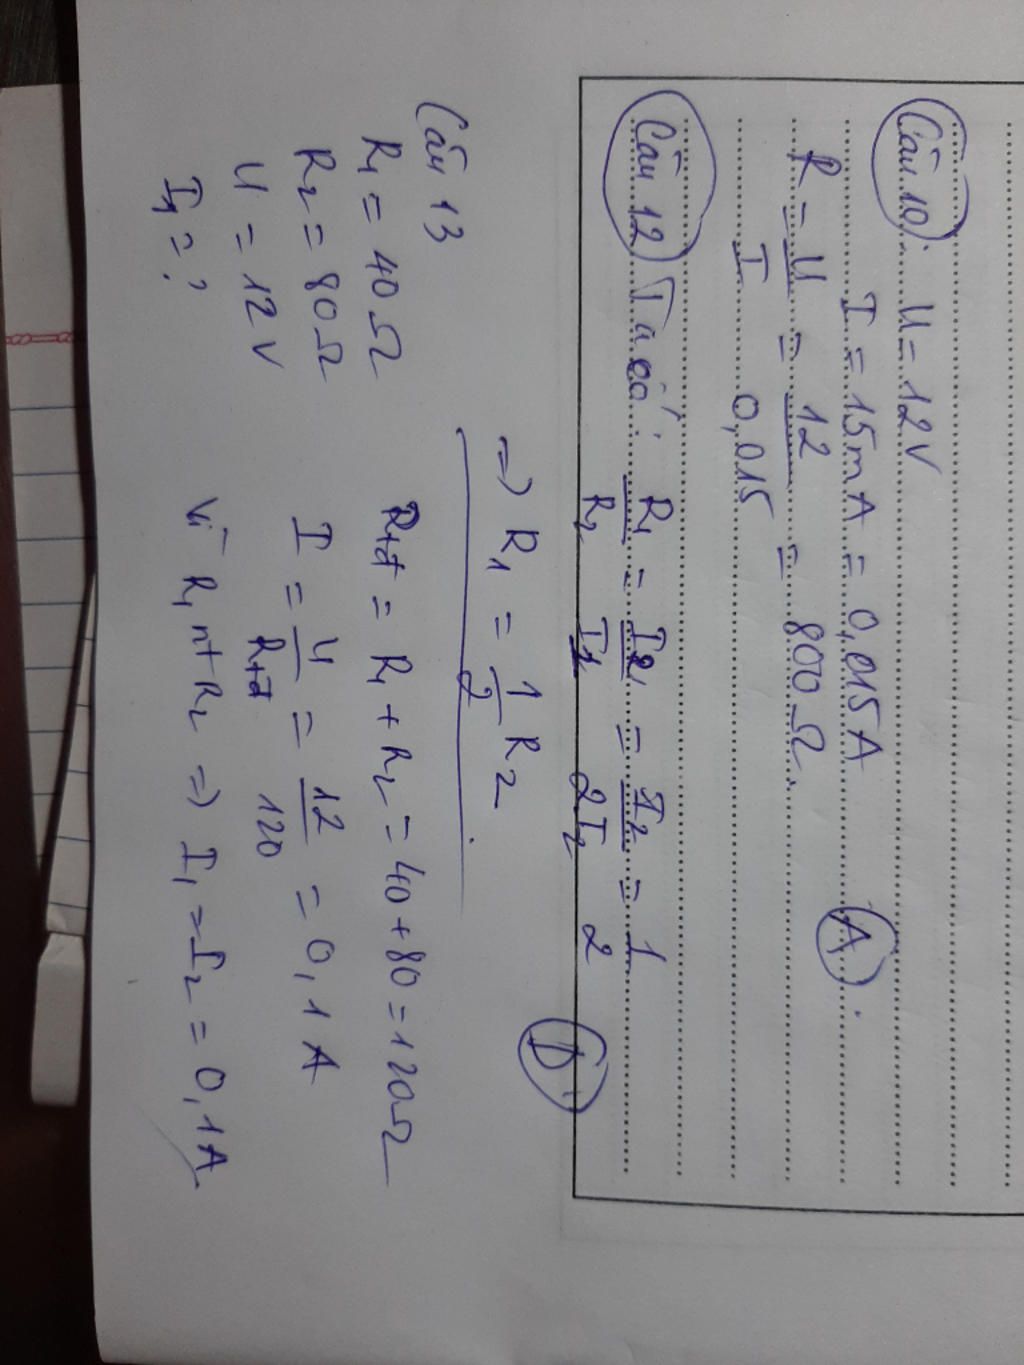 Câu 10: U = 12V
I = 15mA = 0,015A
R = U/I = 12/0,015 = 800Ω. (A).
Câu 12 Ta có: R₁/R₂ = I₂/I₁ = I₂/2I₂ = 1/2
=> R₁ = 1/2 R₂ (D)
Câu 13
R₁ = 40Ω
R₂ = 80Ω
U = 12V
I₁ = ?
Rtđ = R₁ + R₂ = 40 + 80 = 120Ω
I = U/Rtđ = 12/120 = 0,1A
Vì R₁ nt R₂ => I₁ = I₂ = 0,1A